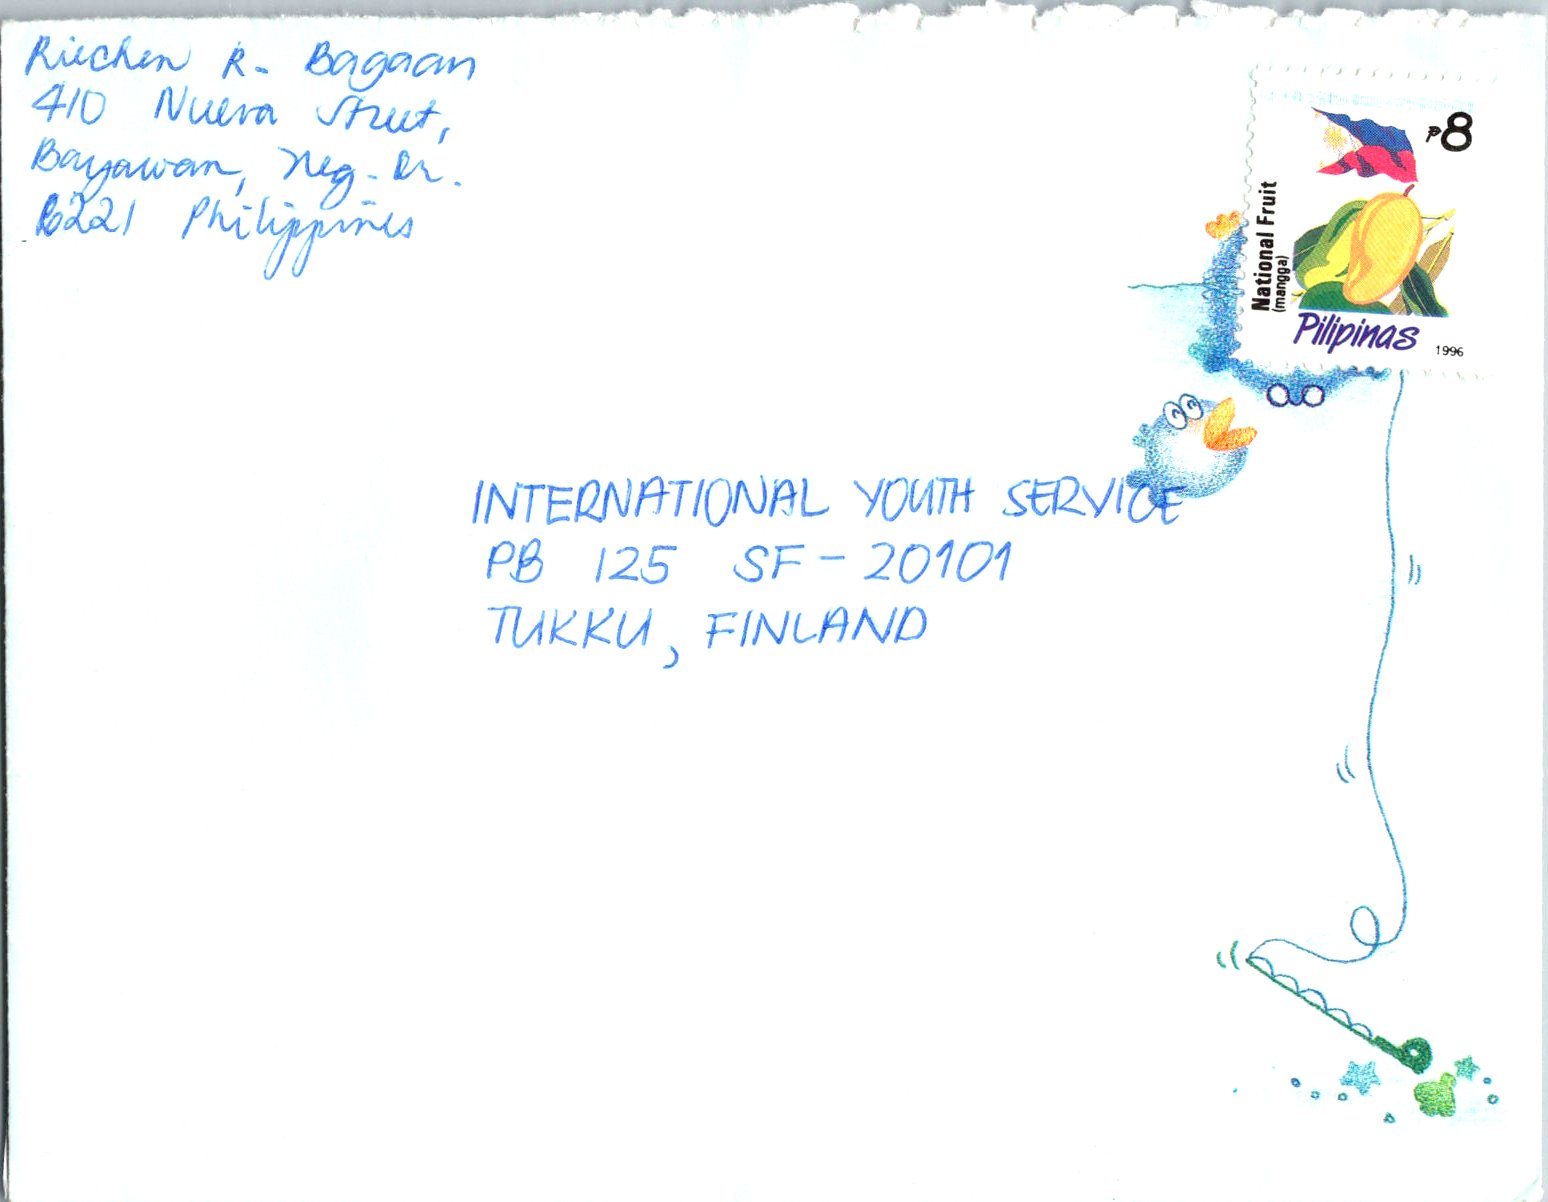 Riechen R. Bagaan
410 Nueva Street,
Bayawan, Neg. Or.
6221 Philippines
₱8
National Fruit
(mangga)
Pilipinas
1996
INTERNATIONAL YOUTH SERVICE
PB 125 SF-20101
TUKKU, FINLAND